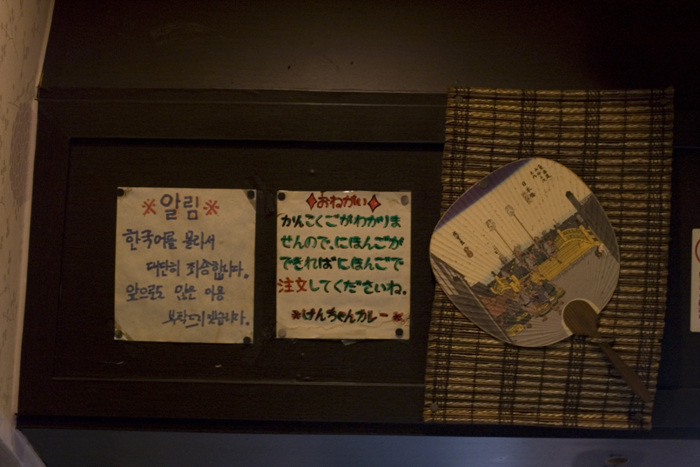 ※알림※
한국어를 몰라서
대단히 죄송합니다.
앞으로도 많은 이용
부탁드리겠습니다.
おねがい
かんこくごがわかりま
せんので、にほんごが
できればにほんごで
注文してくださいね。
※けんちゃんカレー※